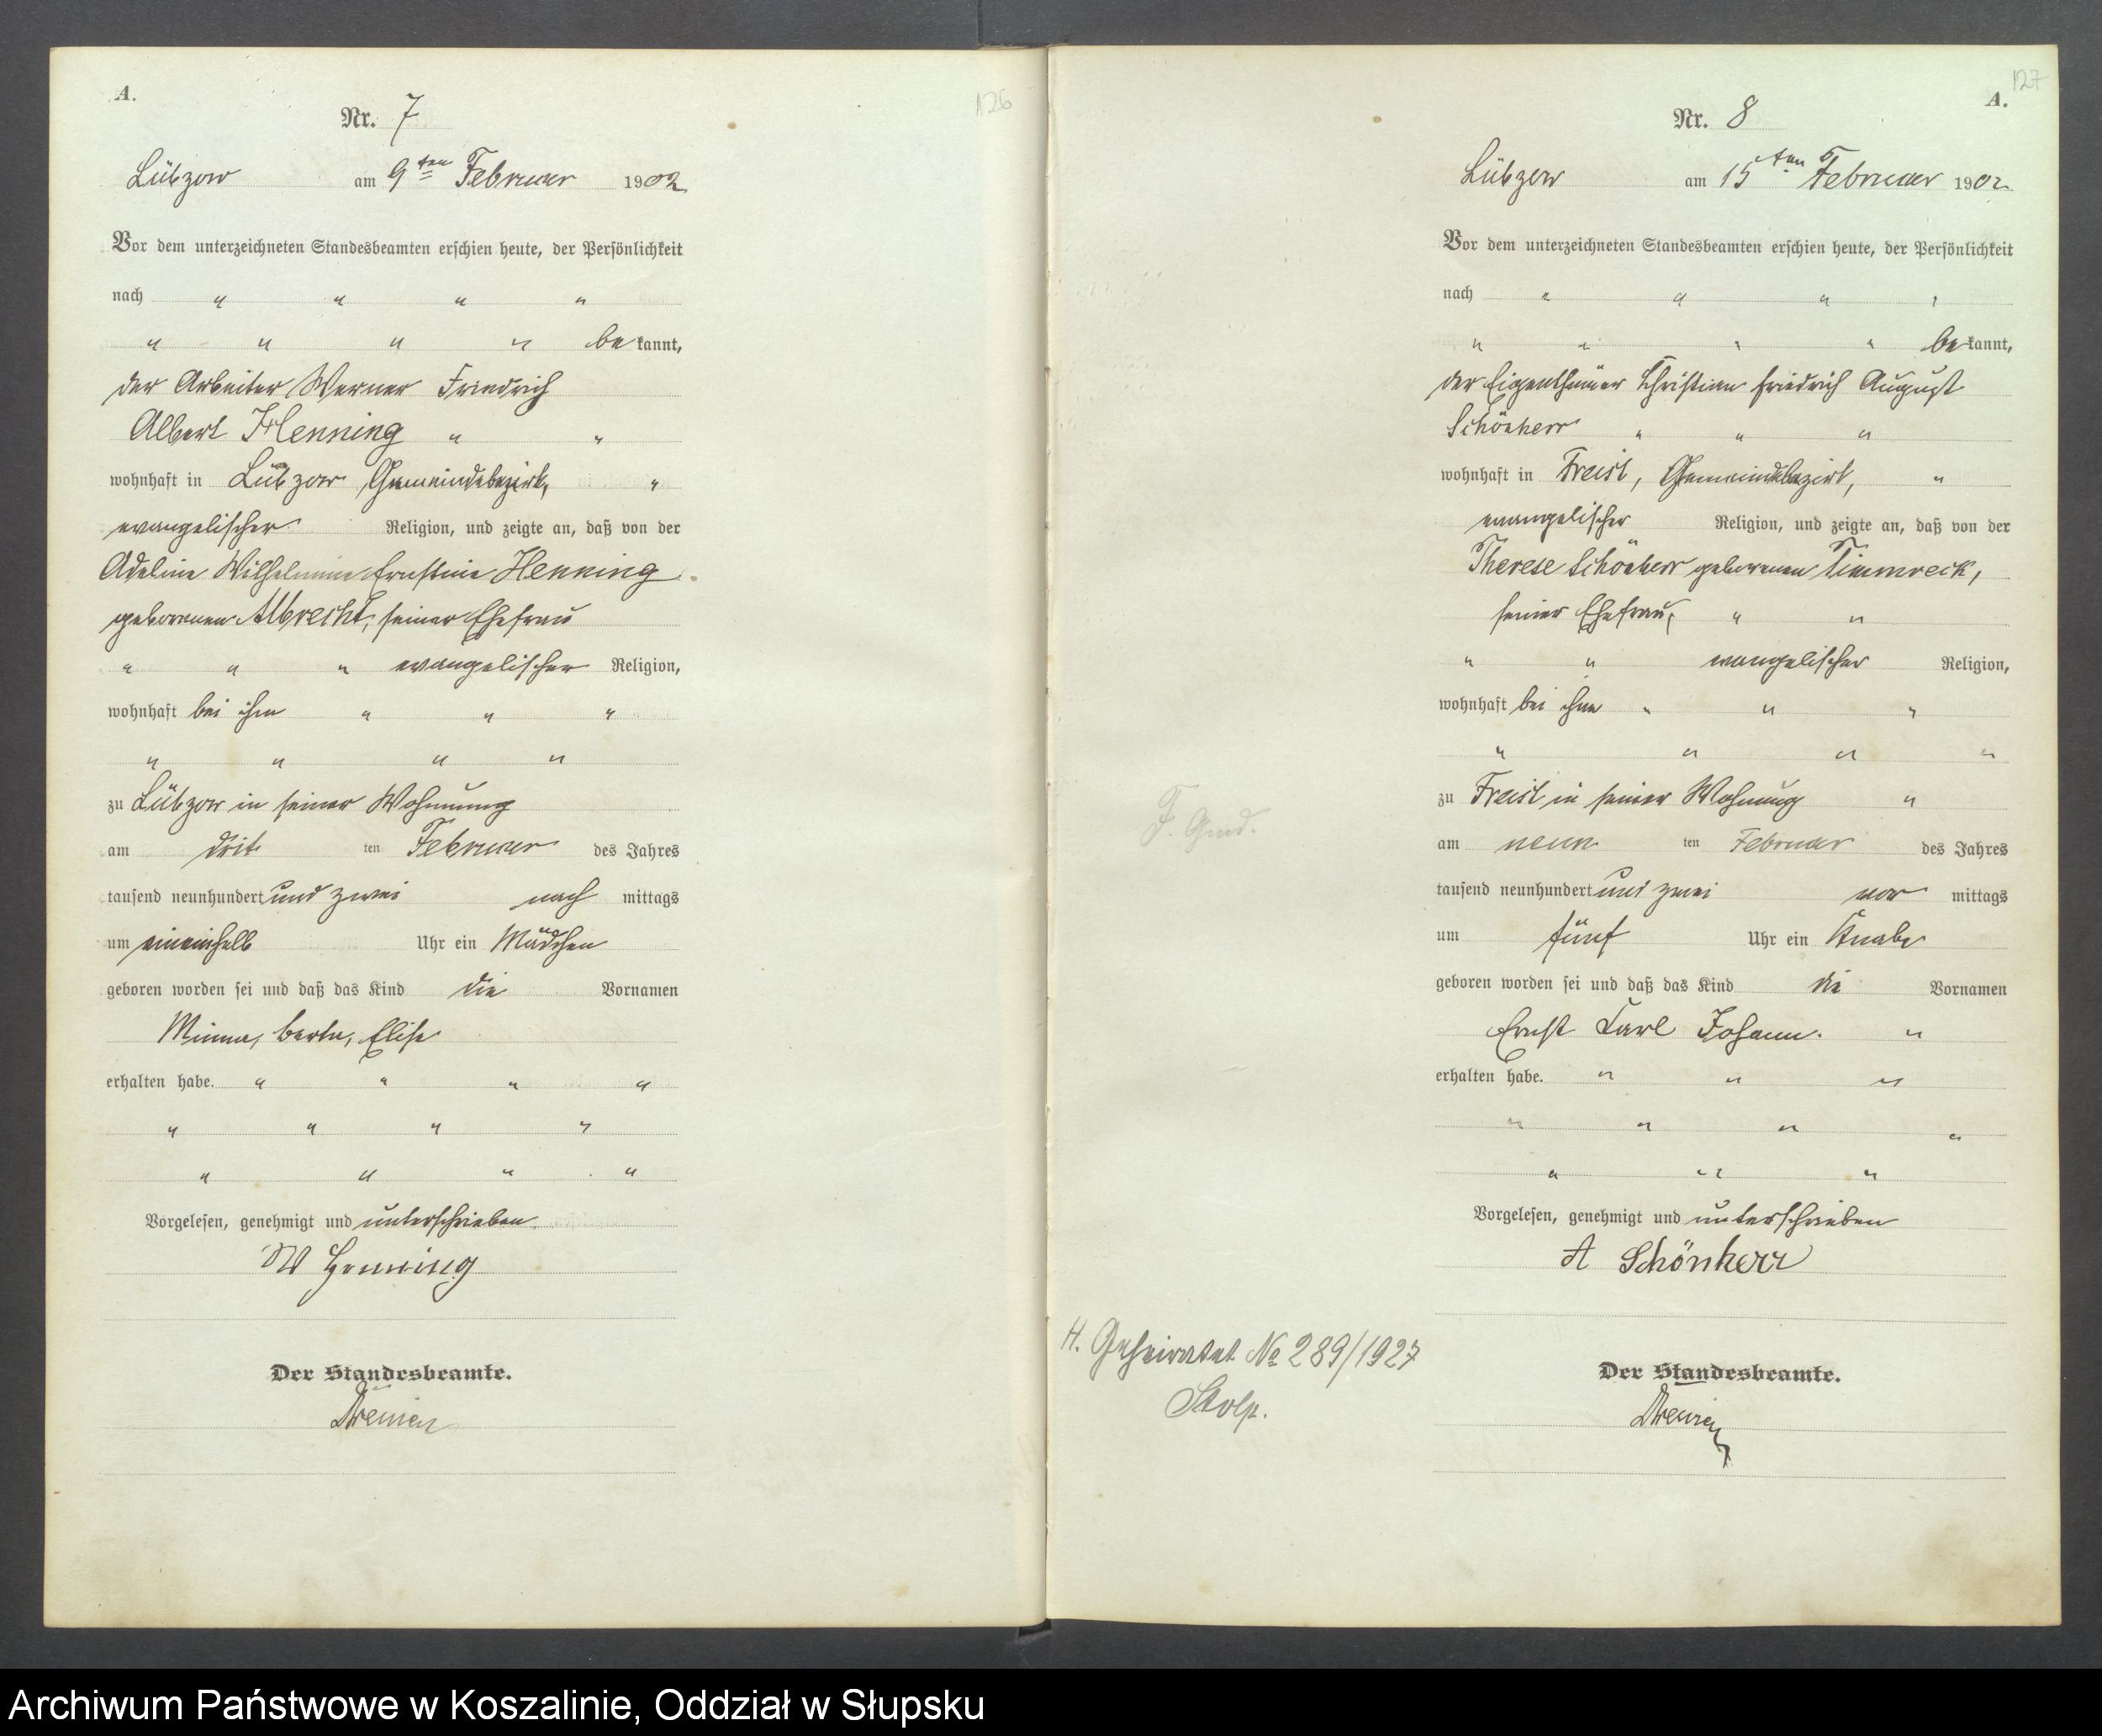 A.
126
Nr. 7
Lübzow am 9ten Februar 1902
Vor dem unterzeichneten Standesbeamten erschien heute, der Persönlichkeit
nach " " " "
" " " " be kannt,
der Arbeiter Werner Friedrich
Albert Henning " "
wohnhaft in Lübzow Gemeindebezirk, "
evangelischer Religion, und zeigte an, daß von der
Adeline Wilhelmine Ernstine Henning
geborenen Albrecht, seiner Ehefrau
" " " evangelischer Religion,
wohnhaft bei ihm " " "
" " " "
zu Lübzow in seiner Wohnung
am drit ten Februar des Jahres
tausend neunhundert und zwei nach mittags
um eineinhalb Uhr ein Mädchen
geboren worden sei und daß das Kind die Vornamen
Minna, Berta, Elise
erhalten habe. " " " "
" " " "
" " " "
Vorgelesen, genehmigt und unterschrieben.
W Henning
Der Standesbeamte.
127
A.
Nr. 8
Lübzow am 15ten Februar 1902
Vor dem unterzeichneten Standesbeamten erschien heute, der Persönlichkeit
nach " " " "
" " " " be kannt,
der Eigenthümer Christian Friedrich August
Schönherr " " "
wohnhaft in Freist, Gemeindebezirk, "
evangelischer Religion, und zeigte an, daß von der
Therese Schönherr geborenen Timmreck,
seiner Ehefrau, " "
" " evangelischer Religion,
wohnhaft bei ihm " " "
" " " "
zu Freist in seiner Wohnung "
am neun ten Februar des Jahres
tausend neunhundert und zwei vor mittags
um fünf Uhr ein Knabe
geboren worden sei und daß das Kind die Vornamen
Ernst Carl Johann. "
erhalten habe. " " "
" " " "
" " "
Vorgelesen, genehmigt und unterschrieben
A Schönherr
Der Standesbeamte.
F. Gmd.
H. Geheiratet No 289/1927
Stolp.
Archiwum Państwowe w Koszalinie, Oddział w Słupsku